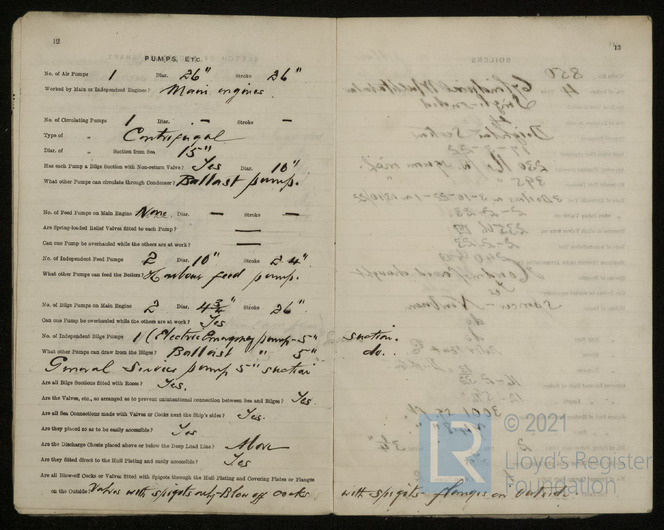 12
PUMPS, ETC.
No. of Air Pumps 1 Diar. 26" Stroke 26"
Worked by Main or Independent Engines? Main engines.
No. of Circulating Pumps 1 Diar. — Stroke —
Type of " Centrifugal
Diar. of " Suction from Sea 15"
Has each Pump a Bilge Suction with Non-return Valve? Yes Diar. 10"
What other Pumps can circulate through Condenser? Ballast pump.
No. of Feed Pumps on Main Engine None. Diar. — Stroke —
Are Spring-loaded Relief Valves fitted to each Pump? —
Can one Pump be overhauled while the others are at work? —
No. of Independent Feed Pumps 2 Diar. 10" Stroke 24"
What other Pumps can feed the Boilers? Harbour feed pump.
No. of Bilge Pumps on Main Engine 2 Diar. 4¾" Stroke 26"
Can one Pump be overhauled while the others are at work? Yes
No. of Independent Bilge Pumps 1 (Electric Emergency pump - 5" suction.
What other Pumps can draw from the Bilges? Ballast " 5" do.
General Service pump 5" suction
Are all Bilge Suctions fitted with Roses? Yes.
Are the Valves, etc., so arranged as to prevent unintentional connection between Sea and Bilges? Yes.
Are all Sea Connections made with Valves or Cocks next the Ship's sides? Yes.
Are they placed so as to be easily accessible? Yes
Are the Discharge Chests placed above or below the Deep Load Line? Above
Are they fitted direct to the Hull Plating and easily accessible? Yes
Are all Blow-off Cocks or Valves fitted with Spigots through the Hull Plating and Covering Plates or Flanges
on the Outside? Valves with spigots only - Blow off cocks with spigots - flanges on outside
13
© 2021
Lloyd's Register
Foundation